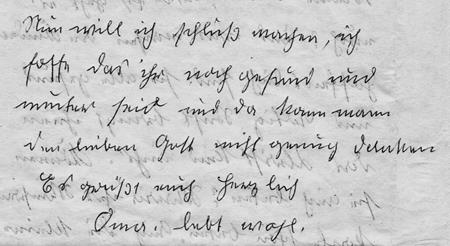 Nun will ich schluß machen, ich
hoffe das ihr noch gesund und
munter seid und da kann mann
den lieben Gott nicht genug danken
Es grüßt euch herzlich
Oma. lebt wohl.